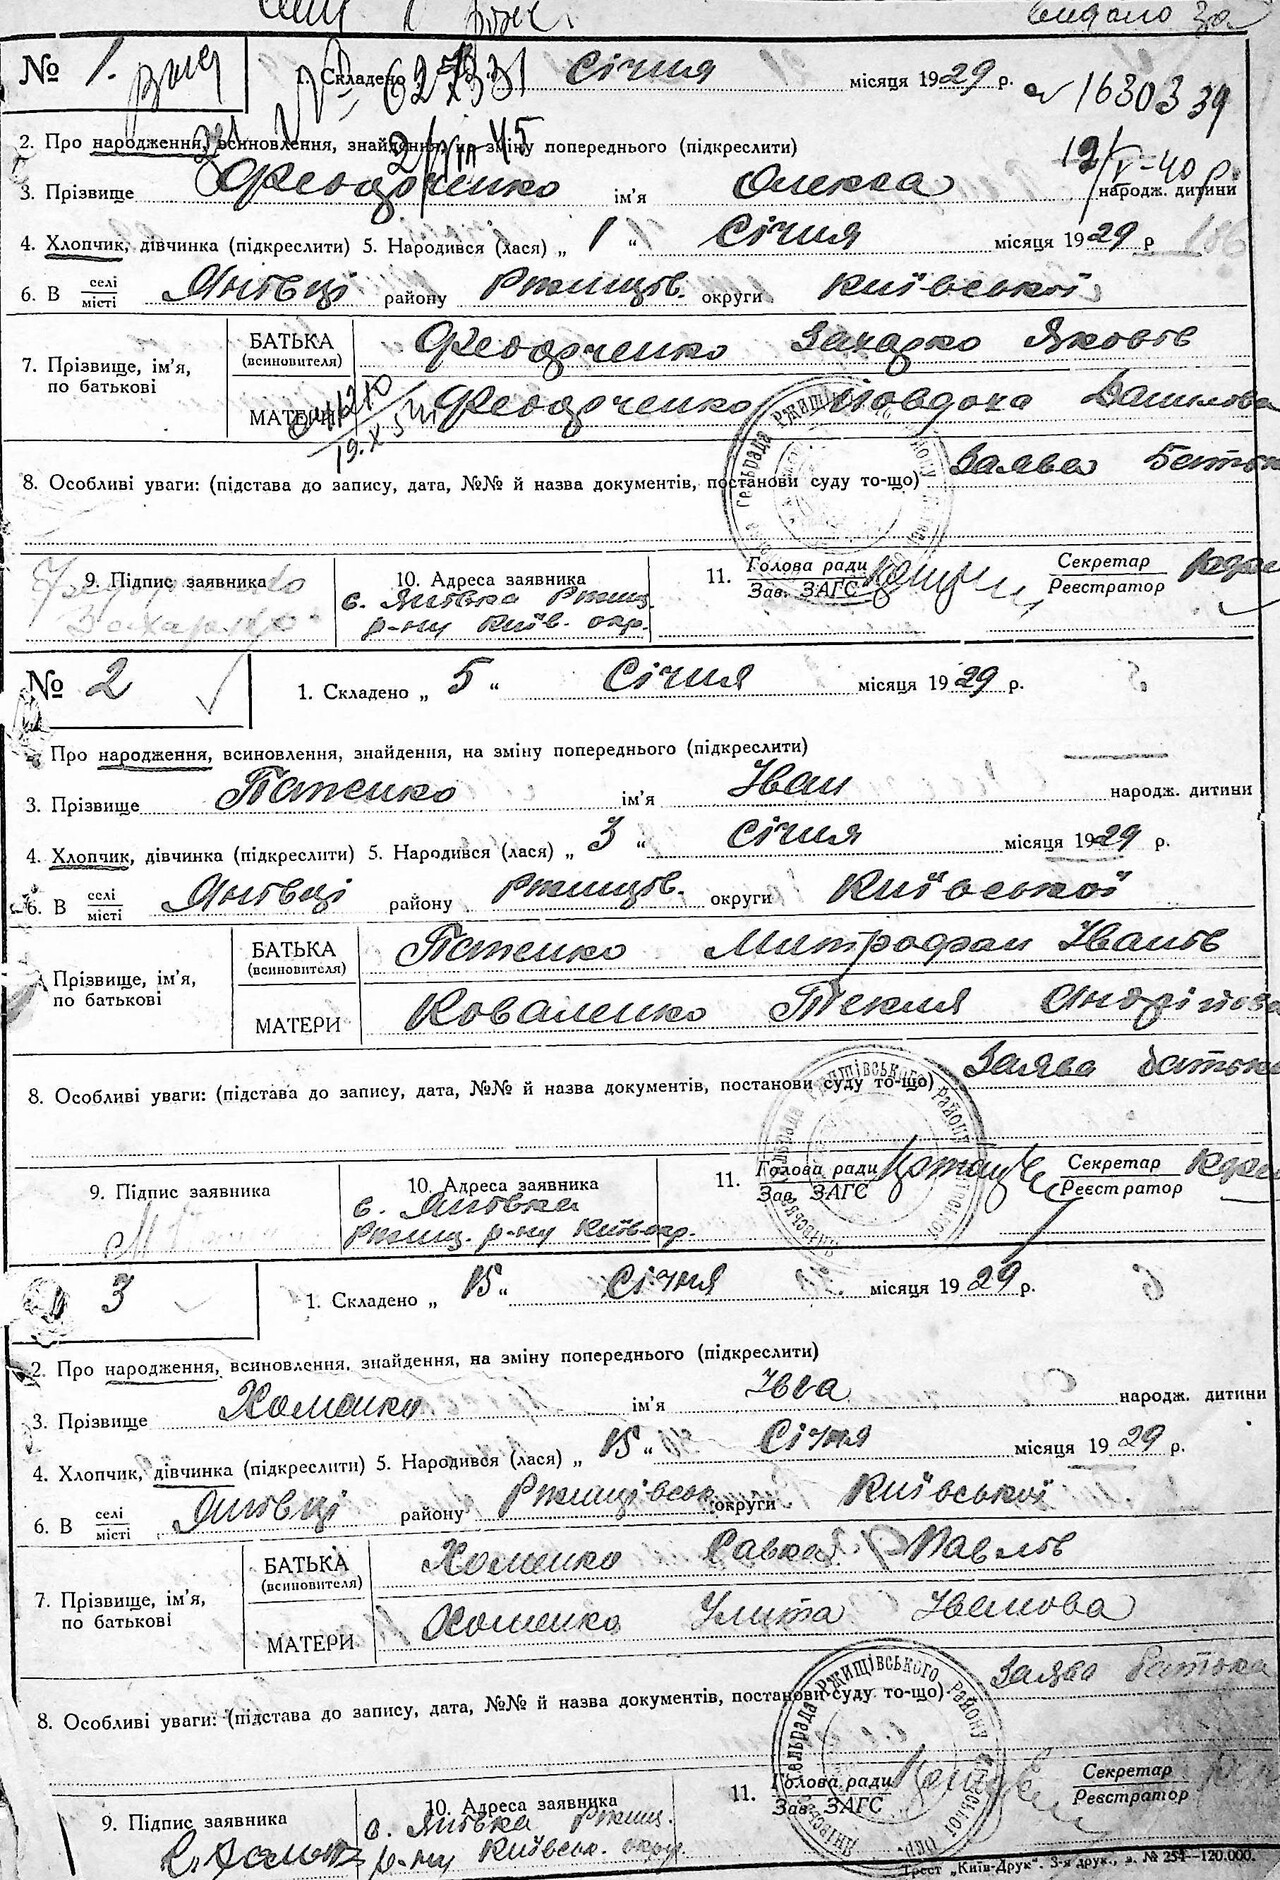 видано за
№ 1.
1. Складено Січня місяця 1929 р.
№ 627331
а 1630339
2. Про народження, всиновлення, знайдення, на зміну попереднього (підкреслити)
12/V-40 р.
3. Прізвище Федорченко ім'я Олекса народж. дитини
4. Хлопчик, дівчинка (підкреслити) 5. Народився (лася) „ 1 “ Січня місяця 1929 р
6. В селі/місті Янівці району Ржищів. округи Київської
7. Прізвище, ім'я, по батькові
БАТЬКА (всиновителя) Федорченко Захарко Яковів
МАТЕРИ Федорченко Явдоха Данилова
19.X.5
Заява Батька
8. Особливі уваги: (підстава до запису, дата, №№ й назва документів, постанови суду то-що)
9. Підпис заявника Федорченко
10. Адреса заявника с. Янівка Ржищ. р-ну Київ. окр.
11. Голова ради/Зав. ЗАГС
Секретар/Реєстратор
№ 2
1. Складено „ 5 “ Січня місяця 1929 р.
Про народження, всиновлення, знайдення, на зміну попереднього (підкреслити)
3. Прізвище Патенко ім'я Іван народж. дитини
4. Хлопчик, дівчинка (підкреслити) 5. Народився (лася) „ 3 “ Січня місяця 1929 р.
6. В селі/місті Янівці району Ржищів. округи Київської
Прізвище, ім'я, по батькові
БАТЬКА (всиновителя) Патенко Митрофан Іванів
МАТЕРИ Коваленко Текля Андріїова
Заява батька
8. Особливі уваги: (підстава до запису, дата, №№ й назва документів, постанови суду то-що)
9. Підпис заявника
10. Адреса заявника с. Янівка Ржищ. р-ну Київ окр.
11. Голова ради/Зав. ЗАГС
Секретар/Реєстратор
3
1. Складено „ 15 “ Січня місяця 1929 р.
2. Про народження, всиновлення, знайдення, на зміну попереднього (підкреслити)
3. Прізвище Хоменко ім'я Івга народж. дитини
4. Хлопчик, дівчинка (підкреслити) 5. Народився (лася) „ 15 “ Січня місяця 1929 р.
6. В селі/місті Янівці району Ржищівськ округи Київської
7. Прізвище, ім'я, по батькові
БАТЬКА (всиновителя) Хоменко Савка Павлів
МАТЕРИ Хоменко Улита Іванова
Заява батька
8. Особливі уваги: (підстава до запису, дата, №№ й назва документів, постанови суду то-що)
9. Підпис заявника
10. Адреса заявника с. Янівка Ржищ. р-ну Київськ. окр.
11. Голова ради/Зав. ЗАГС
Секретар/Реєстратор
Трест „Київ-Друк“. 3-я друк., з. № 254—120.000.